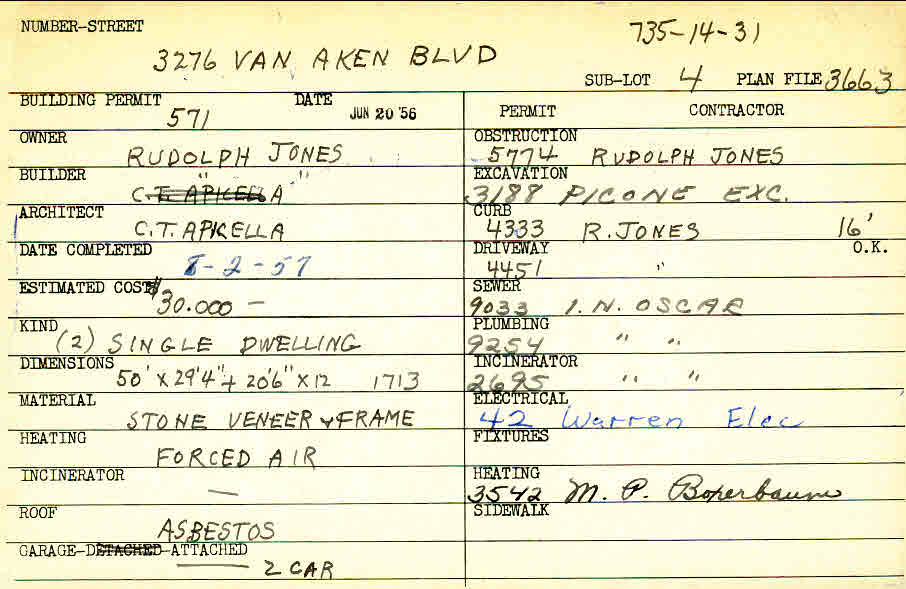 NUMBER-STREET
735-14-31
3276 VAN AKEN BLVD
SUB-LOT 4 PLAN FILE 3663
BUILDING PERMIT 571 DATE JUN 20 '56
PERMIT CONTRACTOR
OWNER RUDOLPH JONES
OBSTRUCTION 5774 RUDOLPH JONES
BUILDER " "
C.T. APICELLA
EXCAVATION 3188 PICONE EXC.
ARCHITECT C.T. APICELLA
CURB 4333 R. JONES 16'
DATE COMPLETED 8-2-57
DRIVEWAY 4451 " O.K.
ESTIMATED COST $30.000 —
SEWER 9033 I.N. OSCAR
KIND (2) SINGLE DWELLING
PLUMBING 9254 " "
DIMENSIONS 50' X 29'4" + 20'6" X 12 1713
INCINERATOR 2695 " "
MATERIAL STONE VENEER + FRAME
ELECTRICAL 42 Warren Elec
HEATING FORCED AIR
FIXTURES
INCINERATOR —
HEATING 3542 M. P.
ROOF ASBESTOS
SIDEWALK
GARAGE-DETACHED-ATTACHED
2 CAR